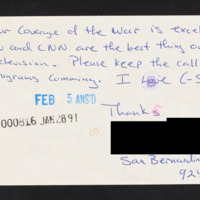 Coverage of the War is excel
and CNN are the best thing on
elevision. Please keep the call
programs comming. I Love C-S
FEB 5 ANS'D
Thanks
000816 JAN 28 91
San Bernardin
924